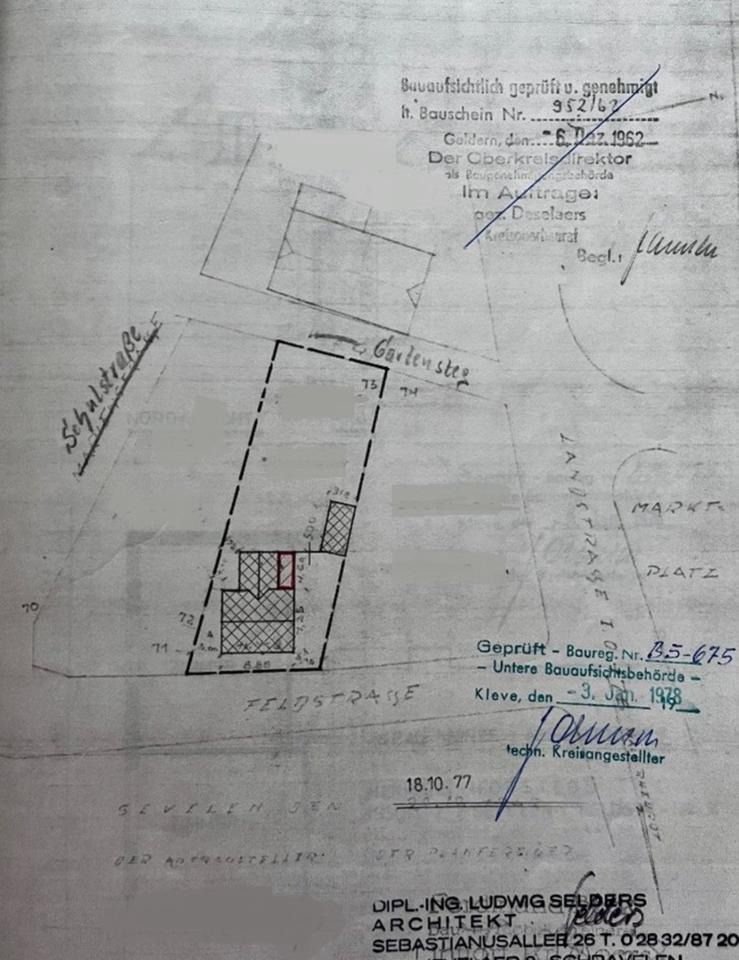 Bauaufsichtlich geprüft u. genehmigt
lt. Bauschein Nr. 952/62
Geldern, den - 6. Dez. 1962
Der Oberkreisdirektor
als Baugenehmigungsbehörde
Im Auftrage:
gez. Deselaers
Kreisoberbaurat
Begl.: Jansen
Schulstraße
Gartensteg
73 74
310
500
LANDSTRASSE
MARKT-
PLATZ
70
72
71
8.86
FELDSTRASSE
Geprüft - Baureg. Nr. B5-675
- Untere Bauaufsichtsbehörde -
Kleve, den - 3. Jan. 1978
techn. Kreisangestellter
18.10.77
SEVELEN DEN
DER ANTRAGSTELLER: DER PLANFERTIGER
DIPL.-ING. LUDWIG SELDERS
ARCHITEKT
SEBASTIANUSALLEE 26 T. 0 28 32/87 20